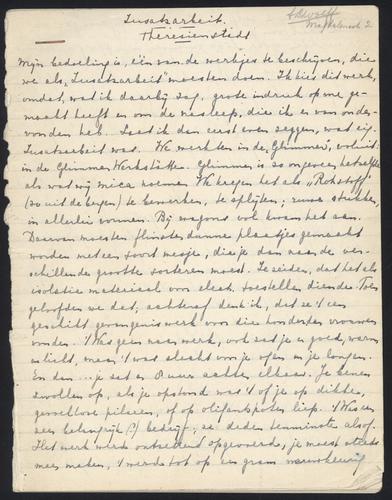 Zusatzarbeit.
Theresienstadt
Mijn bedoeling is, één van de werkjes te beschrijven, die
we als "Zusatzarbeit" moesten doen. Ik kies dit werk,
omdat, wat ik daarbij zag, grote indruk op me ge-
maakt heeft en om de nasleep, die ik er van onder-
vonden heb. Laat ik dan eerst even zeggen, wat eig.
Zusatzarbeit was. We werkten in de "Glimmer", voluit:
in de Glimmer Werkstätte. Glimmer is zo ongeveer hetzelfde
als wat wij mica noemen. We kregen het als "Rohstof"
(zo uit de bergen) te bewerken, te splijten; ruwe stukken
in allerlei vormen. Bij wagons vol kwam het aan.
Daarvan moesten flinterdunne plaatjes gemaakt
worden met een soort mesje, die je dan naar de ver-
schillende grootte sorteren moest. Ze zeiden, dat het als
isolatie materiaal voor elect. toestellen diende. Toen
geloofden we dat; achteraf denk ik, dat ze 't een
geschikt gevangeniswerk voor die honderden vrouwen
vonden. 't Was geen naar werk, ook zat je er goed, warm
en licht, maar 't was slecht voor je ogen en je longen.
En dan ... je zat er 8 uur achter elkaar. Je benen
zwollen op, als je opstond was 't of je op dikke,
gevoelloze pilaren, of op olifantspoten liep. 't Was een
zeer belangrijk (?) bedrijf; ze deden tenminste alsof.
Het werk werd ontzettend opgevoerd, je moest steeds
meer maken, 't werd tot op een gram nauwkeurig